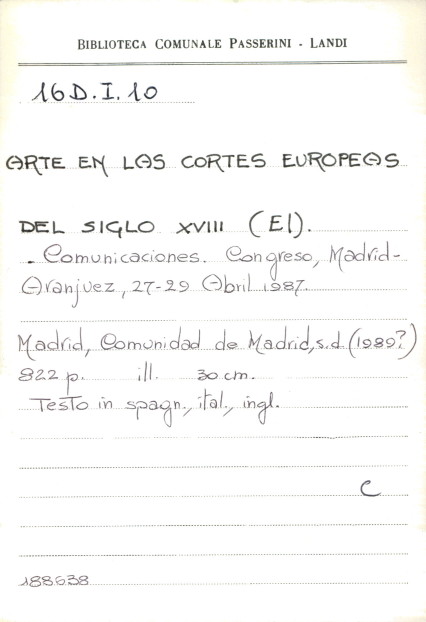 BIBLIOTECA COMUNALE PASSERINI - LANDI
16D.I.10
ARTE EN LAS CORTES EUROPEAS
DEL SIGLO XVIII (El).
. Comunicaciones. Congreso, Madrid-
Aranjuez, 27-29 Abril 1987.
Madrid, Comunidad de Madrid, s.d. (1989?)
822 p. ill. 30 cm.
Testo in spagn., ital., ingl.
C
188638